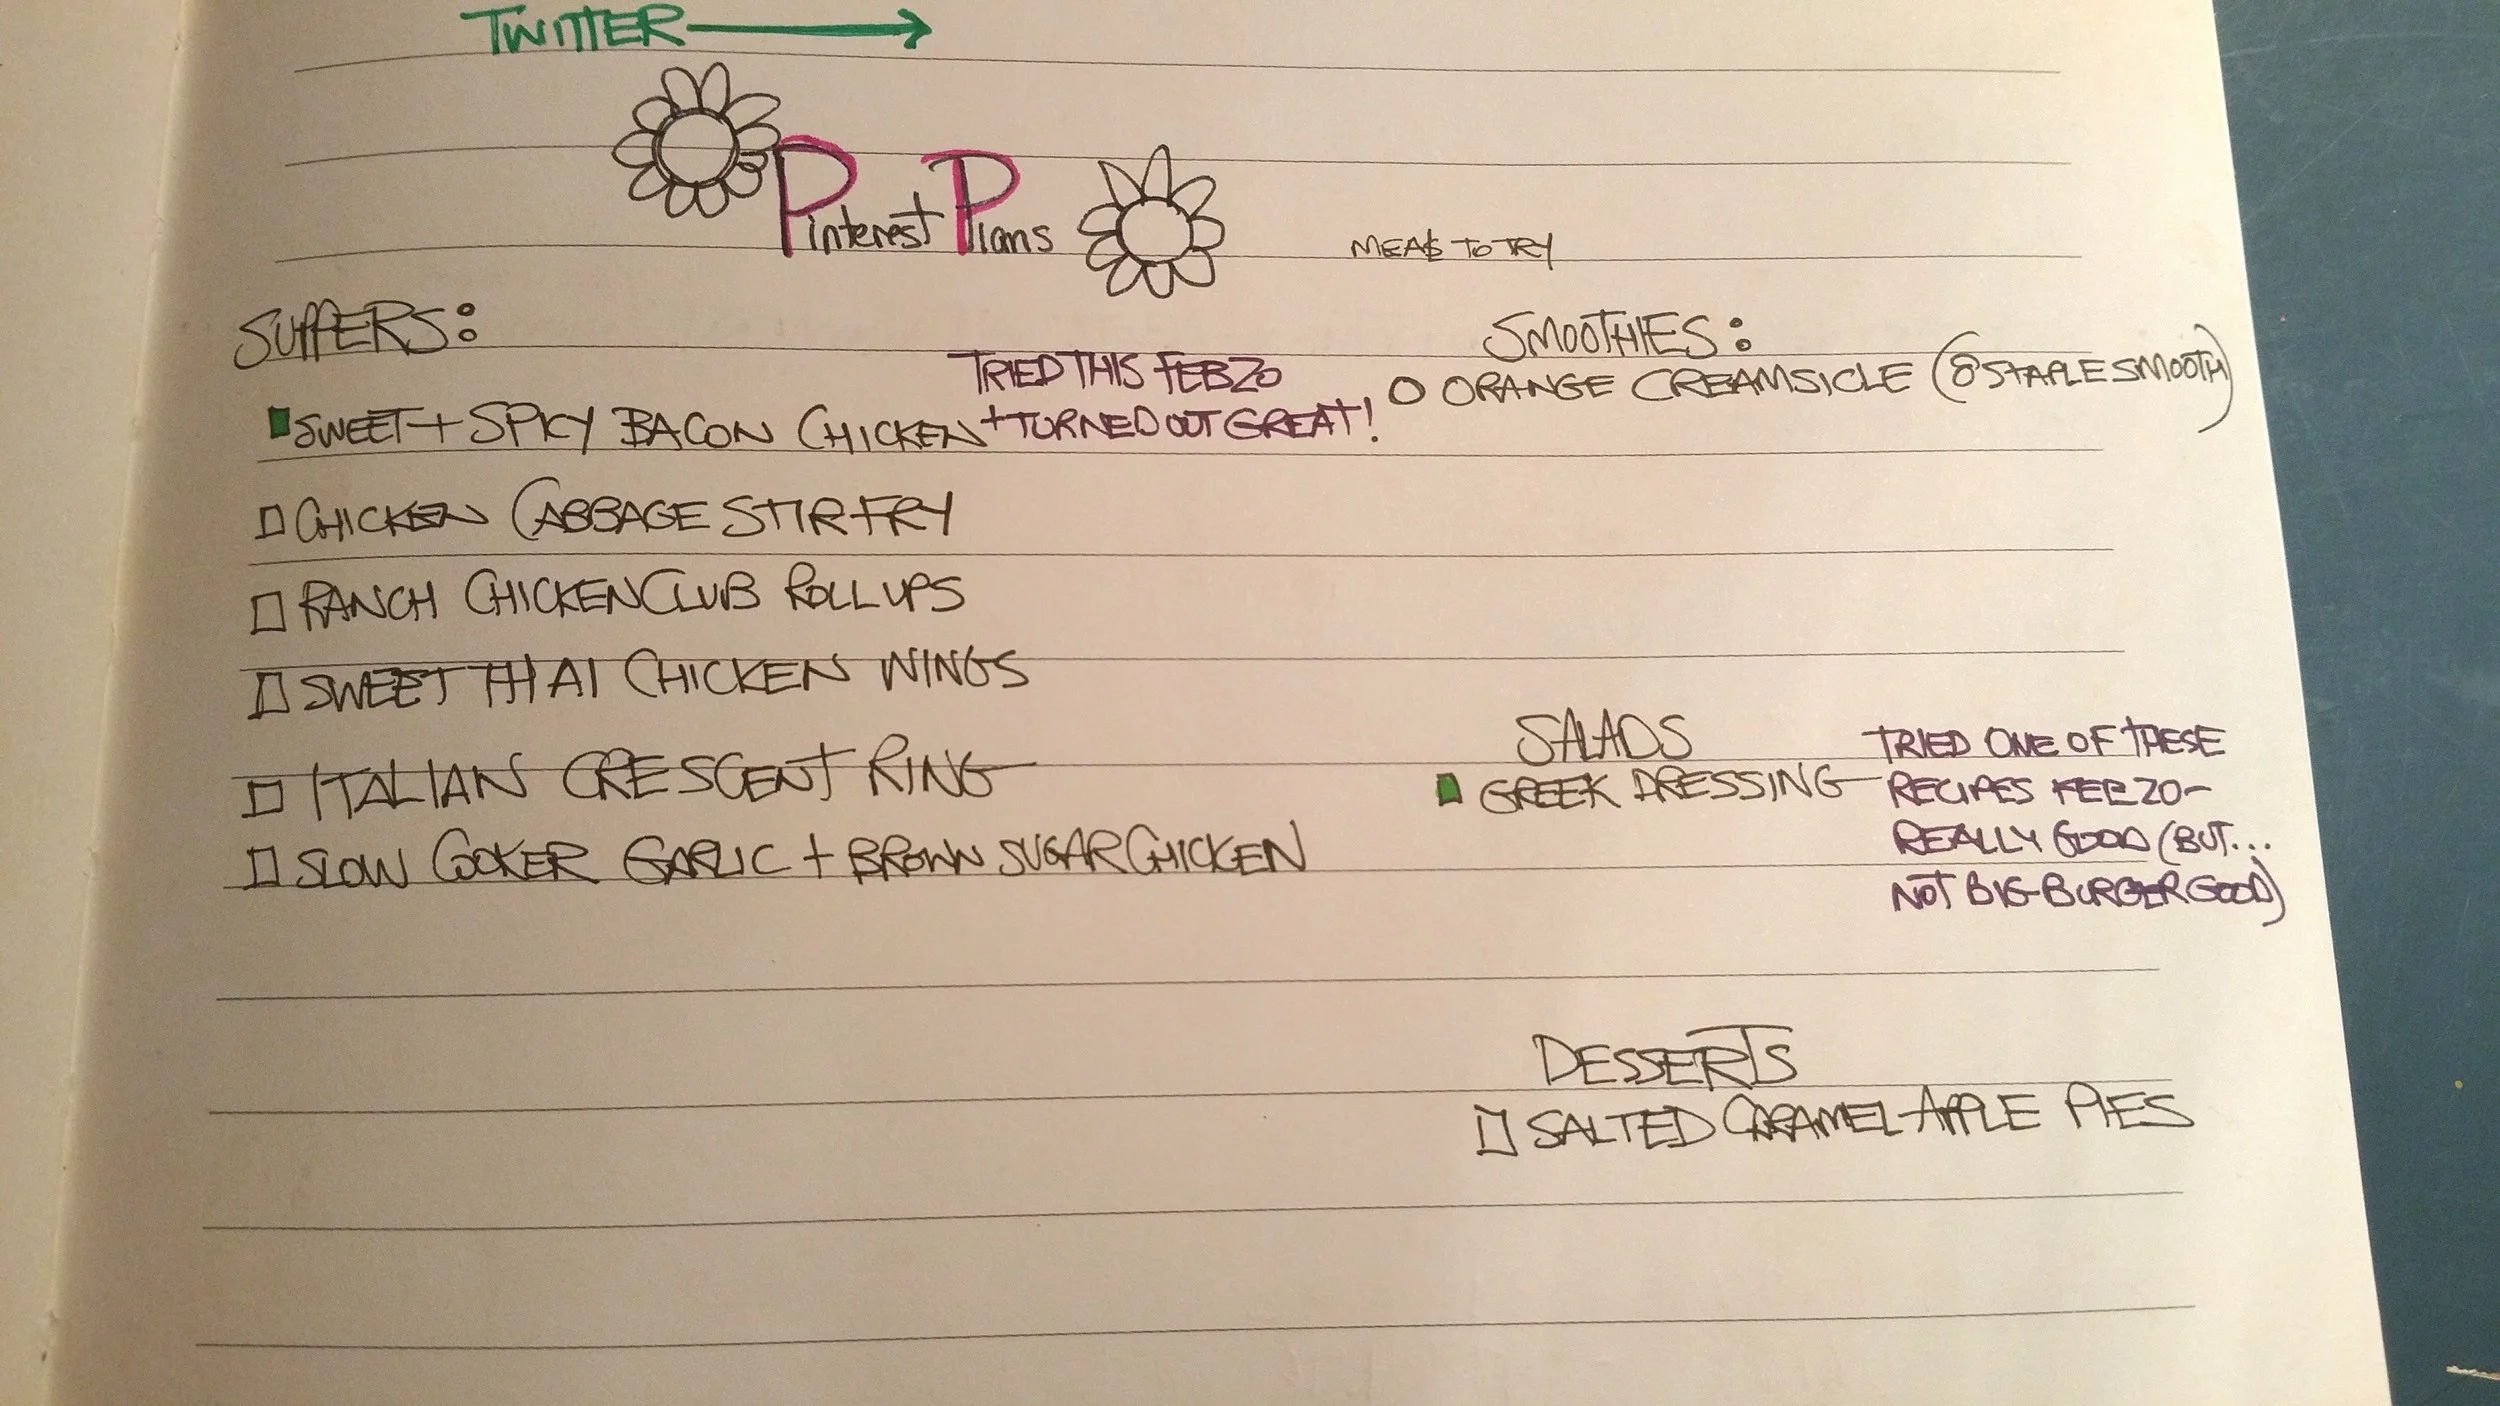 TWITTER
Pinterest Plans
MEALS TO TRY
SUPPERS:
TRIED THIS FEB 20
SWEET + SPICY BACON CHICKEN + TURNED OUT GREAT!
CHICKEN CABBAGE STIR FRY
RANCH CHICKEN CLUB ROLL UPS
SWEET THAI CHICKEN WINGS
ITALIAN CRESCENT RING
SLOW COOKER GARLIC + BROWN SUGAR CHICKEN
SMOOTHIES:
ORANGE CREAMSICLE (8 STAPLE SMOOTH)
SALADS
GREEK DRESSING
TRIED ONE OF THESE
RECIPES FEB 20-
REALLY GOOD (BUT...
NOT BIG BURGER GOOD)
DESSERTS
SALTED CARAMEL APPLE PIES